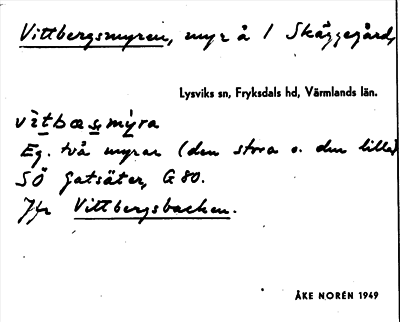 Vittbergsmyren, myr å 1 Skäggegård,
Lysviks sn, Fryksdals hd, Värmlands län.
vìtbæs̩mỳra
Eg. två myrar (den stora o. den lilla)
SÖ Gatsäter, G 80.
Jfr Vittbergsbacken.
ÅKE NORÉN 1949